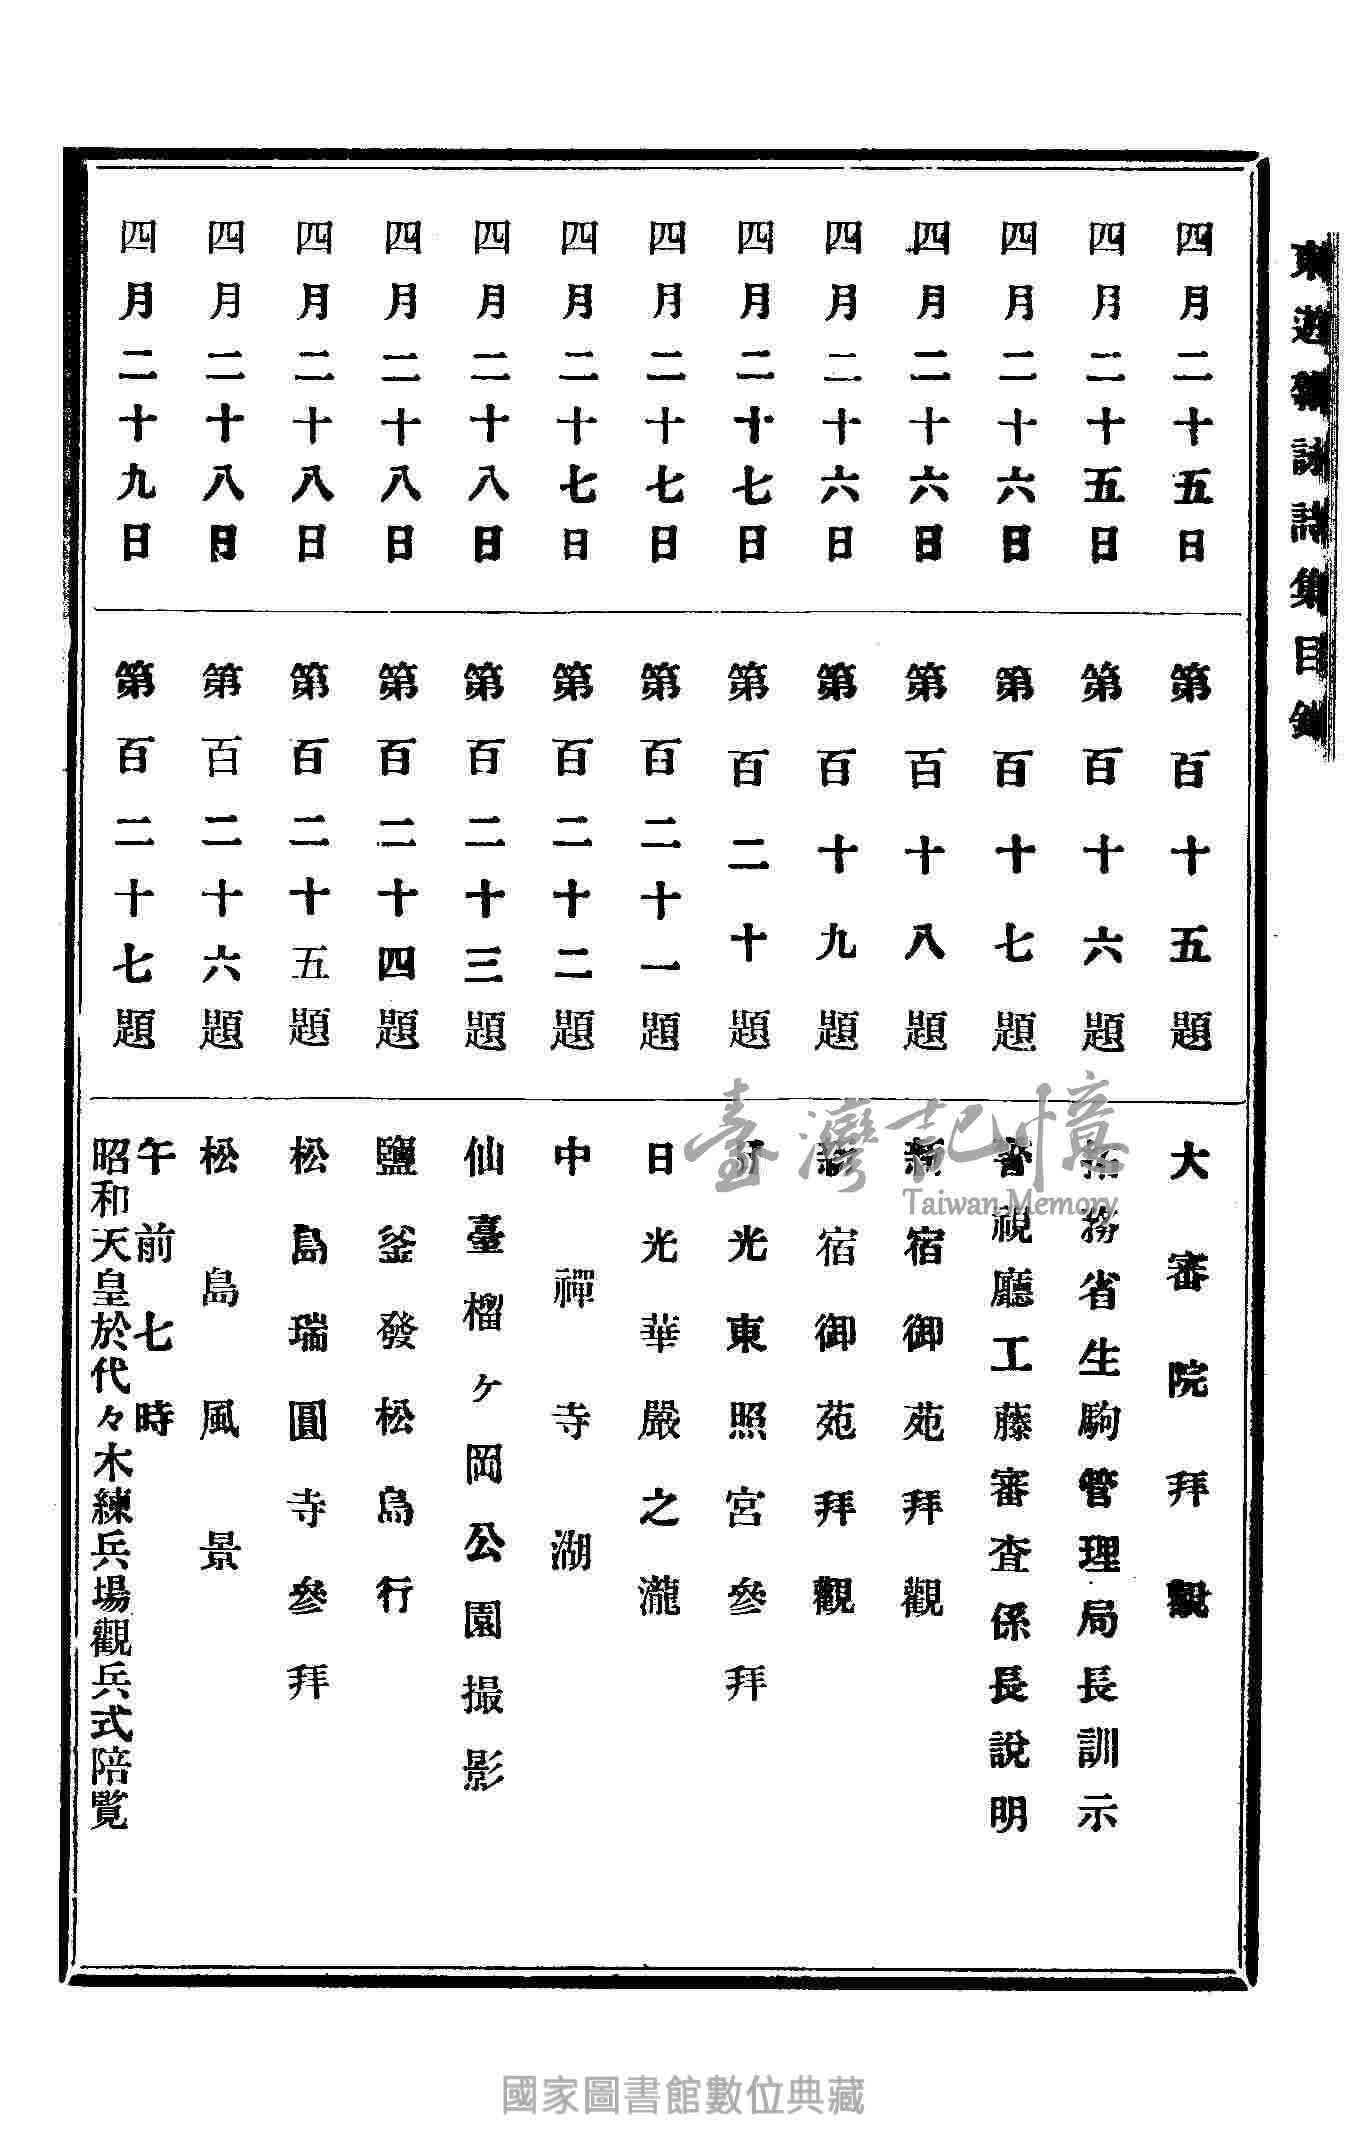 東遊雜詠詩集目錄
四月二十五日 第百十五題 大審院拜觀
四月二十五日 第百十六題 拓務省生駒管理局長訓示
四月二十六日 第百十七題 警視廳工藤審査係長說明
四月二十六日 第百十八題 新宿御苑拜觀
四月二十六日 第百十九題 新宿御苑拜觀
四月二十七日 第百二十題 日光東照宮參拜
四月二十七日 第百二十一題 日光華嚴之瀧
四月二十七日 第百二十二題 中禪寺湖
四月二十八日 第百二十三題 仙臺榴ヶ岡公園撮影
四月二十八日 第百二十四題 鹽釜發松島行
四月二十八日 第百二十五題 松島瑞圓寺參拜
四月二十八日 第百二十六題 松島風景
四月二十九日 第百二十七題 午前七時
昭和天皇於代々木練兵場觀兵式陪覽
臺灣記憶
Taiwan Memory
國家圖書館數位典藏